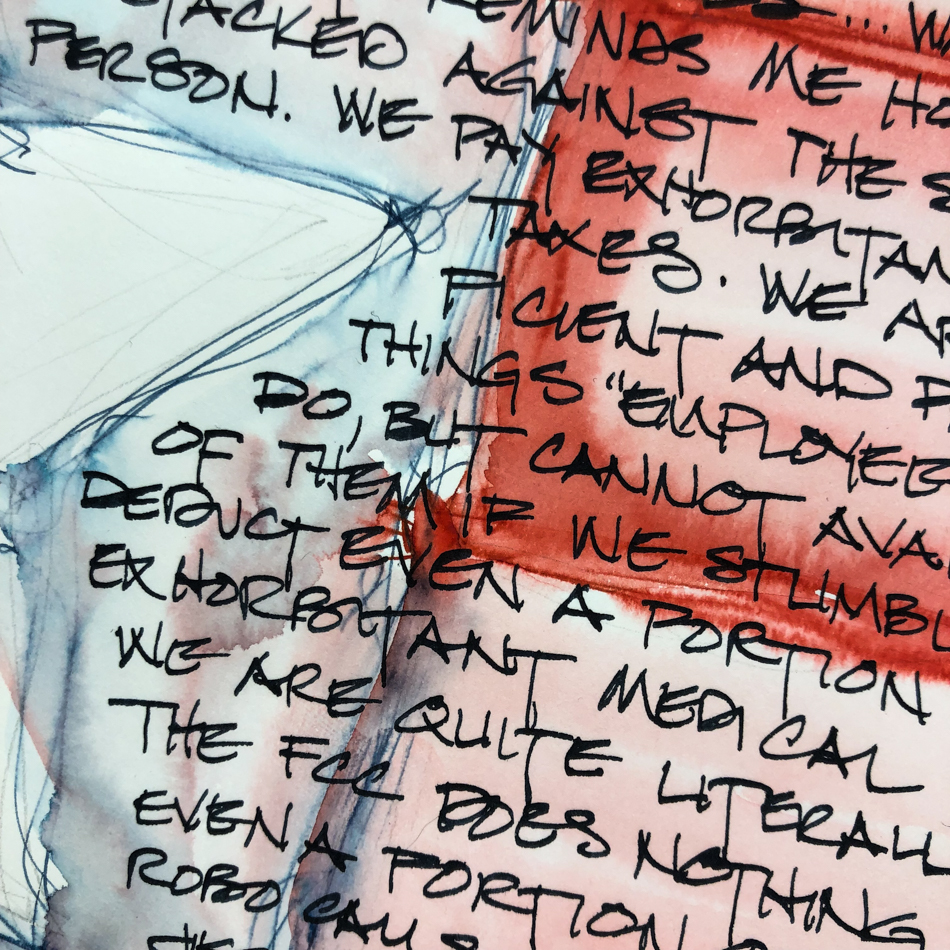 REMINDS ME HO
TACKED AGAINST THE S
PERSON. WE PAY EXHORBITAN
TAXES. WE AR
FICIENT AND
THINGS "EMPLOYEE
DO, BUT CANNOT AVA
OF THEM IF WE STUMBL
DEDUCT EVEN A PORTION
EXHORBITANT MEDICAL
WE ARE QUITE LITERALL
THE FCC DOES NOTHING
EVEN A PORTION
ROBO CALLS